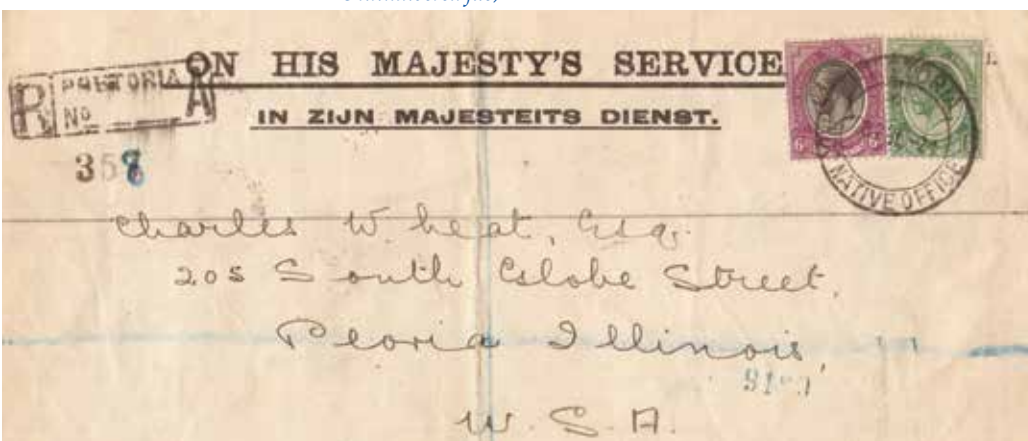 ON HIS MAJESTY'S SERVICE
IN ZIJN MAJESTEITS DIENST.
R PRETORIA A
No
358
6D 6D
NATIVE OFFICE
Charles W. heat, Esq.
205 South Globe Street,
Peoria Illinois
U.S.A.